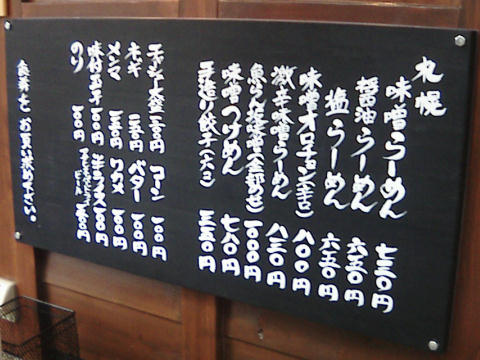 札幌
味噌らーめん 七三〇円
醤油らーめん 六五〇円
塩らーめん 六五〇円
味噌オロチョン(辛さ) 八〇〇円
激辛味噌らーめん 八三〇円
魚らん坂味噌(全部のせ) 一〇〇〇円
味噌つけめん 七八〇円
手造り餃子(六コ) 三五〇円
チャーシュー
コーン 一〇〇円
ネギ 一五〇円
バター 一〇〇円
メンマ
ワカメ 一〇〇円
味付玉子 一〇〇円
半ライス 一〇〇円
のり 一〇〇円
ビール
食券をお買い求め下さい。